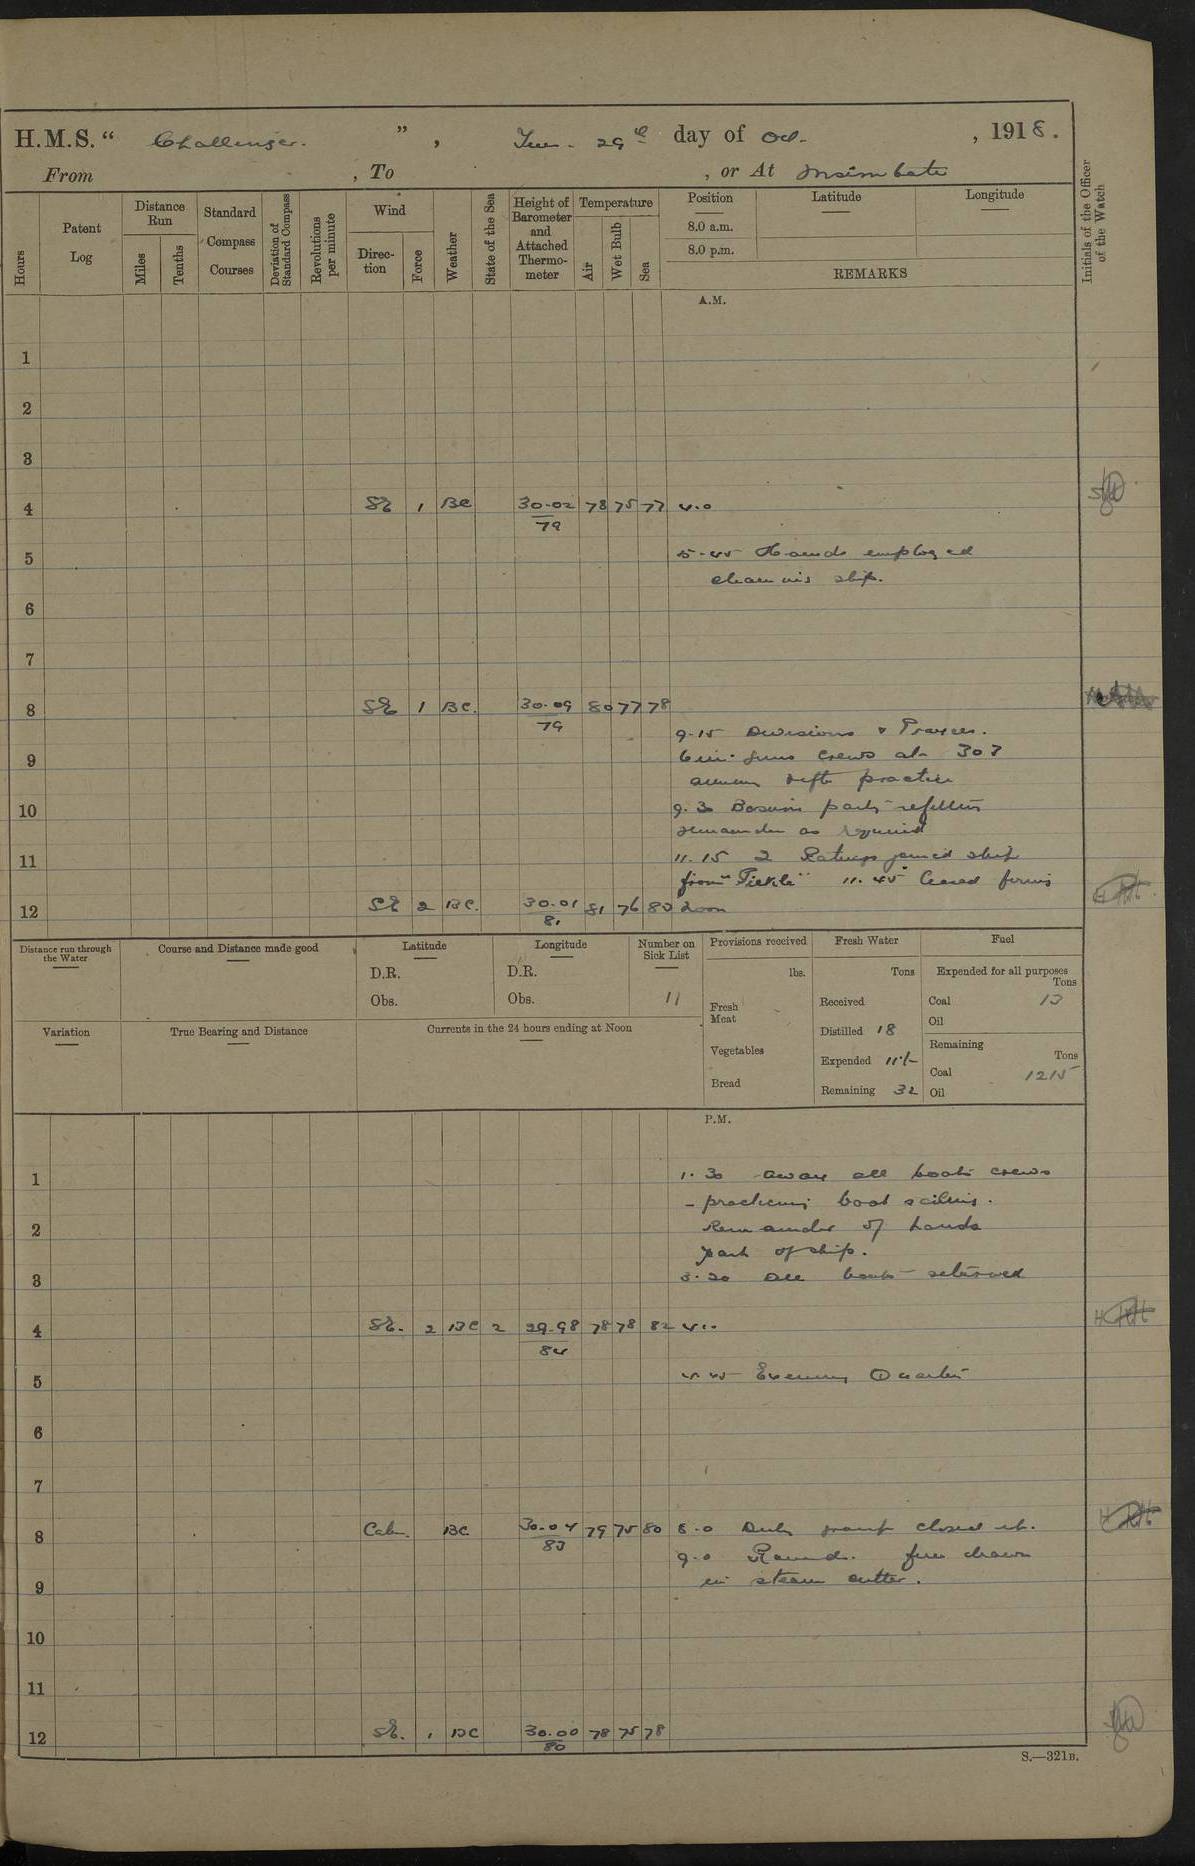 H.M.S. “ Challenger. ” , Tues. 29th day of Oct. , 1918.
From , To , or At Msimbati
Hours
Patent Log
Distance Run
Miles
Tenths
Standard Compass Courses
Deviation of Standard Compass
Revolutions per minute
Wind
Direction
Force
Weather
State of the Sea
Height of Barometer and Attached Thermometer
Temperature
Air
Wet Bulb
Sea
Position
8.0 a.m.
8.0 p.m.
Latitude
Longitude
REMARKS
Initials of the Officer of the Watch
A.M.
1
2
3
4 SE 1 BC 30.02 78 75 77 4.0
79
5 5.45 Hands employed
cleaning ship.
6
7
8 SE 1 BC. 30.09 80 77 78
79
9.15 Divisions & Prayers.
9 6 in. guns crews at 303
aiming rifle practice
10 9.30 Bosun's party refitting
remainder as required
11 11.15 2 Ratings joined ship
from "Tickle" 11.45 Ceased firing
12 SE 2 BC. 30.01 81 76 80 Noon
81
Distance run through the Water
Course and Distance made good
Latitude
D.R.
Obs.
Longitude
D.R.
Obs.
Number on Sick List
11
Provisions received
lbs.
Fresh Meat
Vegetables
Bread
Fresh Water
Tons
Received
Distilled 18
Expended
Remaining 32
Fuel
Expended for all purposes
Tons
Coal 13
Oil
Remaining
Tons
Coal 1215
Oil
Variation
True Bearing and Distance
Currents in the 24 hours ending at Noon
P.M.
1 1.30 Away all boats crews
- practicing boat sailing.
2 Remainder of hands
part of ship.
3 3.20 All boats returned
4 SE. 2 BC 2 29.98 78 78 82 4.0
84
5 4.45 Evening Quarters
6
7
8 Calm. BC 30.04 79 75 80 8.0 closed up.
83
9.0 Rounds. fires drawn
9 in steam cutter.
10
11
12 SE. 1 BC 30.00 78 75 78
80
S.—321B.